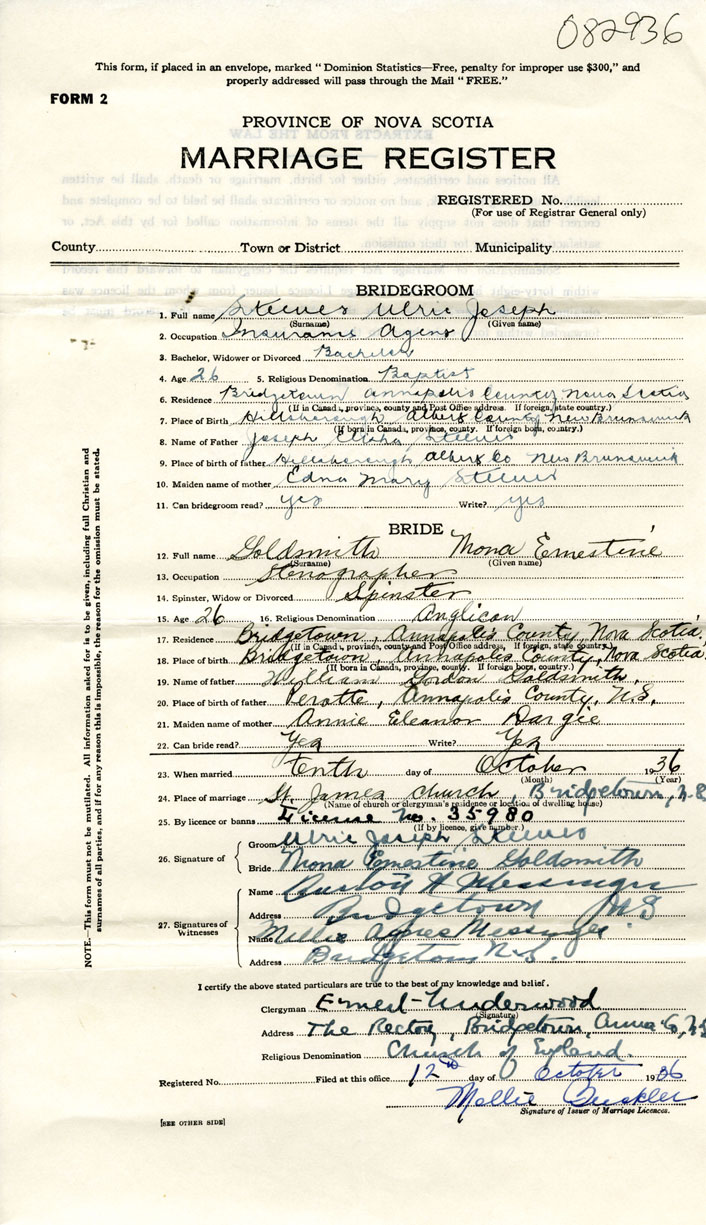 082936
This form, if placed in an envelope, marked "Dominion Statistics—Free, penalty for improper use $300," and
properly addressed will pass through the Mail "FREE."
FORM 2
PROVINCE OF NOVA SCOTIA
MARRIAGE REGISTER
REGISTERED No.
(For use of Registrar General only)
County Town or District Municipality
BRIDEGROOM
1. Full name Steeves Ulric Joseph
(Surname) (Given name)
2. Occupation Insurance Agent
3. Bachelor, Widower or Divorced Bachelor
4. Age 26 5. Religious Denomination Baptist
6. Residence Bridgetown Annapolis County Nova Scotia
(If in Canada, province, county and Post Office address. If foreign, state country.)
7. Place of Birth Hillsborough Albert County New Brunswick
(If born in Canada, province, county. If foreign born, country.)
8. Name of Father Joseph Elisha Steeves
9. Place of birth of father Hillsborough Albert Co New Brunswick
10. Maiden name of mother Edna Mary Steeves
11. Can bridegroom read? yes Write? yes
BRIDE
12. Full name Goldsmith Mona Ernestine
(Surname) (Given name)
13. Occupation Stenographer
14. Spinster, Widow or Divorced Spinster
15. Age 26 16. Religious Denomination Anglican
17. Residence Bridgetown, Annapolis County, Nova Scotia.
(If in Canada, province, county and Post Office address. If foreign, state country.)
18. Place of birth Bridgetown, Annapolis County, Nova Scotia.
(If born in Canada, province, county. If foreign born, country.)
19. Name of father William Gordon Goldsmith.
20. Place of birth of father Perotte, Annapolis County, N.S.
21. Maiden name of mother Annie Eleanor Dargie
22. Can bride read? Yes Write? Yes
23. When married tenth day of October 1936
(Month) (Year)
24. Place of marriage St. James Church, Bridgetown, N.S
(Name of church or clergyman's residence or location of dwelling house)
25. By licence or banns License No. 35980
(If by licence, give number.)
26. Signature of Groom Ulric Joseph Steeves
Bride Mona Ernestine Goldsmith
27. Signatures of Witnesses
Name Messinger
Address Bridgetown NS
Name Millie Agnes Messinger.
Address Bridgetown N.S.
I certify the above stated particulars are true to the best of my knowledge and belief.
Clergyman Ernest Underwood
(Signature)
Address The Rectory, Bridgetown, Anna. Co, N.S
Religious Denomination Church of England.
Registered No. Filed at this office 12th day of October 1936
Mollie
Signature of Issuer of Marriage Licences.
[SEE OTHER SIDE]
NOTE.—This form must not be mutilated. All information asked for is to be given, including full Christian and
surnames of all parties, and if for any reason this is impossible, the reason for the omission must be stated.